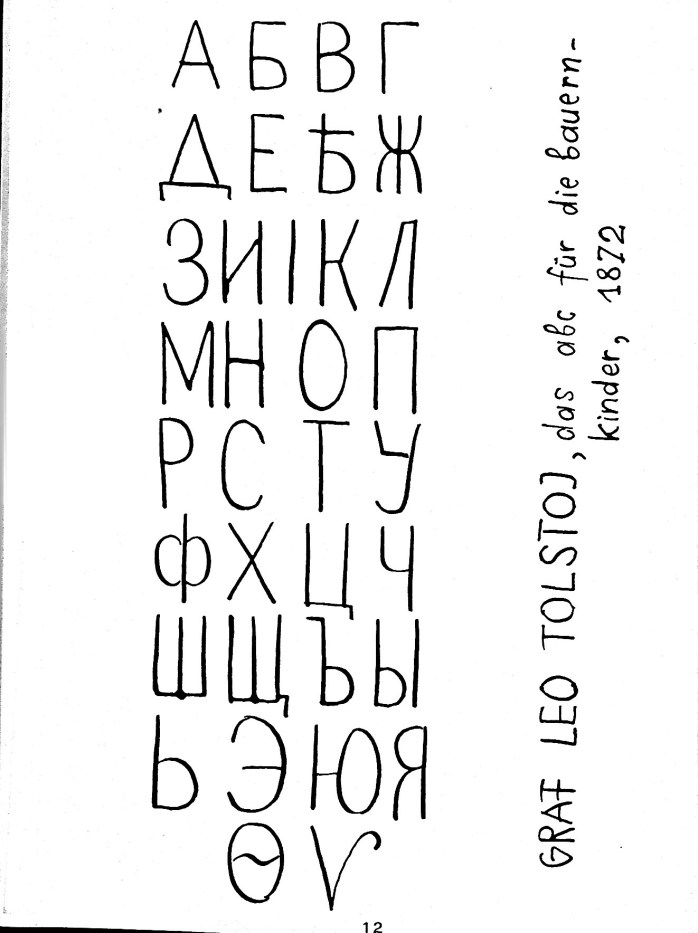 А Б В Г
Д Е Ѣ Ж
З И І К Л
М Н О П
Р С Т У
Ф Х Ц Ч
Ш Щ Ъ Ы
Ь Э Ю Я
Ѳ Ѵ
GRAF LEO TOLSTOJ, das abc für die bauern-
kinder, 1872
12